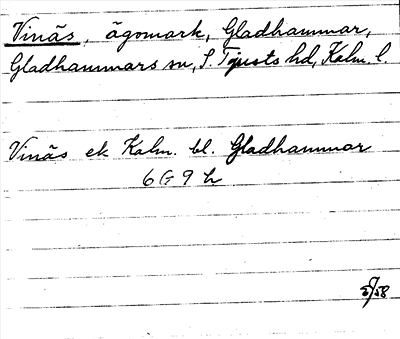 Vinäs, ägomark, Gladhammar,
Gladhammars sn, S. Tjusts hd, Kalm. l.
Vinäs ek Kalm. bl. Gladhammar
6 G 9 h